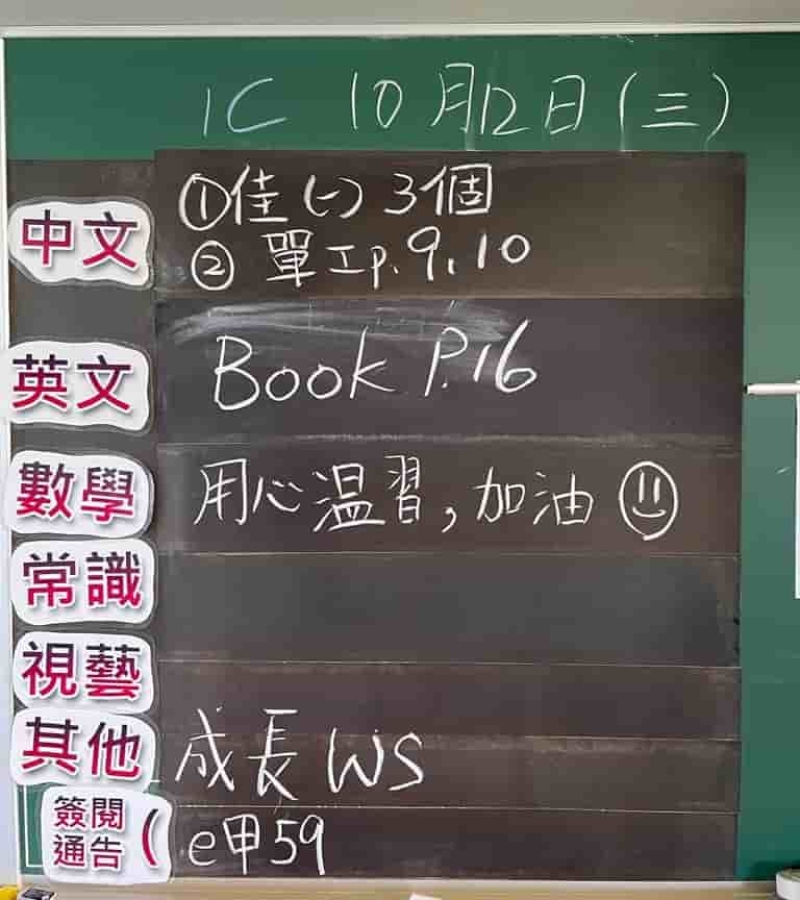 1C 10月12日(三)
中文
①佳(一)3個
②單工p.9,10
英文
Book P.16
數學
用心温習,加油
常識
視藝
其他
成長 WS
簽閱
通告(
e甲59